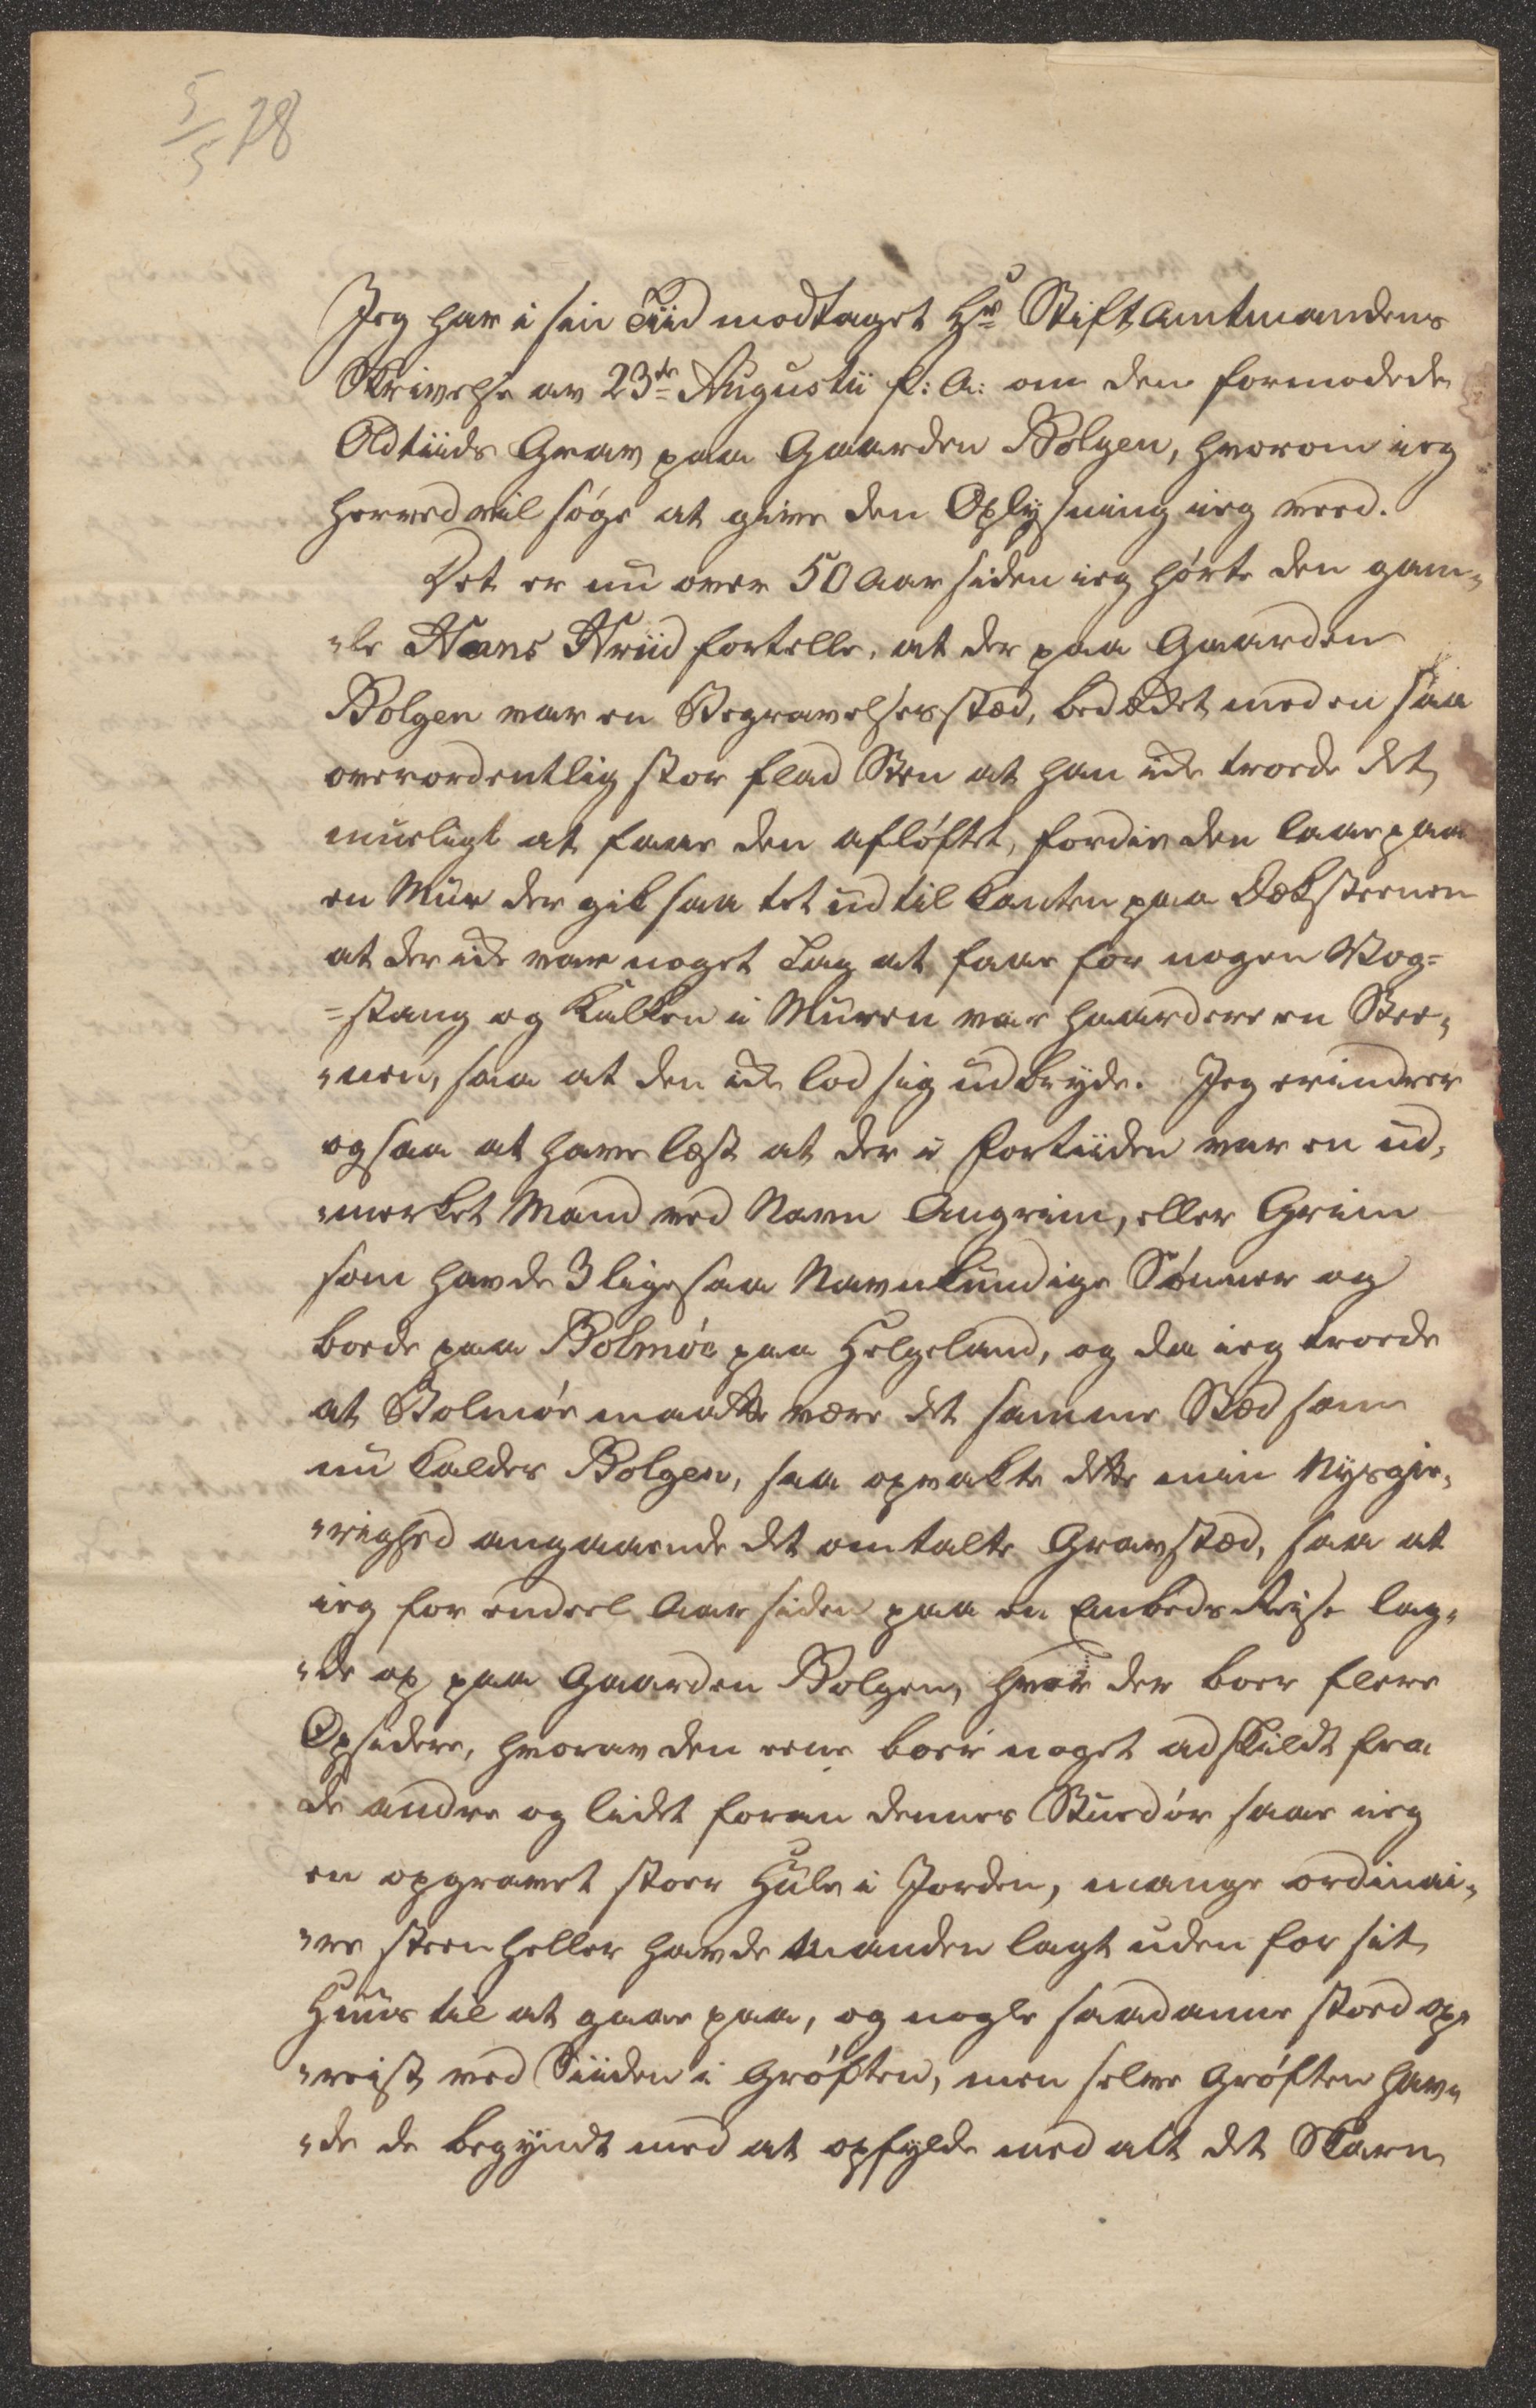 5/5 28
Jeg har i sin Tiid modtaget Hr Stiftamtmandens
Skrivelse av 23de Augustii f: A: om den formodede
Oldtiids Grav paa Gaarden Bolgen, hvorom ieg
herved vil søge at give den Oplysning ieg veed.
Det er nu over 50 Aar siden ieg hørte den gam„
„le Hans Friid fortelle, at der paa Gaarden
Bolgen var en Begravelsesstæd, bedækket med en saa
overordentlig stor flad Sten at han ikke troede det
mueligt at faae den afløftet, fordie den laae paa
en Mur der gik saa tet ud til Kanten paa Dæksteenen
at der ikke var noget Tag at faae for nogen Vog=
=stang og Kalken i Muren var haardere en Stee„
„nen, saa at den ikke lod sig udbryde. Jeg erindrer
ogsaa at have læst at der i Fortiiden var en ud„
„merket Mand ved Navn Angrim, eller Grim
som havde 3 ligesaa Navnkundige Sønner og
boede paa Bolmøe paa Helgeland, og da ieg troede
at Bolmøe maatte være det samme Stæd som
nu kaldes Bolgen, saa opvakte dette min Nysgie„
„righed angaaende det omtalte Gravstæd, saa at
ieg for endeel Aar siden paa en Embeds Reise lag„
„de op paa Gaarden Bolgen, hvor der boer flere
Opsidere, hvorav den eene boer noget adskildt fra
de andre og lidet foran dennes Stuedør saae ieg
en opgravet stoer Hule i Jorden, mange ordinai„
„re steenheller havde Manden lagt uden for sit
Huus til at gaae paa, og nogle saadanne stoed op„
„reist ved Siiden i Grøften, men selve Grøften hav„
„de de begyndt med at opfylde med alt det Skarn